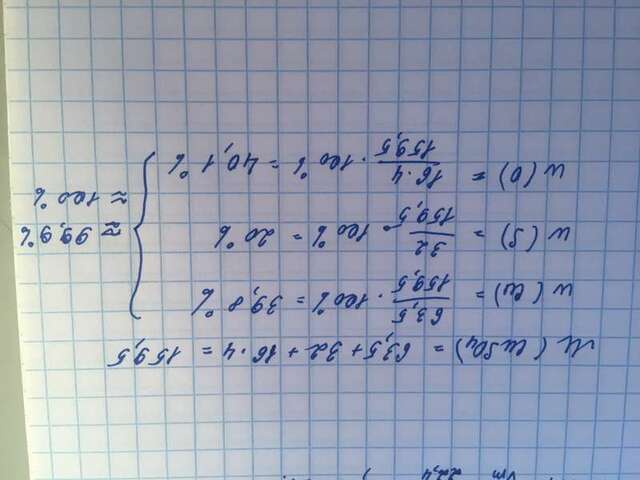 Vm 22,4 ,
M (CuSO4) = 63,5 + 32 + 16 · 4 = 159,5
w (Cu) = 63,5 / 159,5 · 100% = 39,8 %
w (S) = 32 / 159,5 · 100% = 20 %
≈ 99,9%
≈ 100%
w (O) = 16 · 4 / 159,5 · 100% = 40,1 %